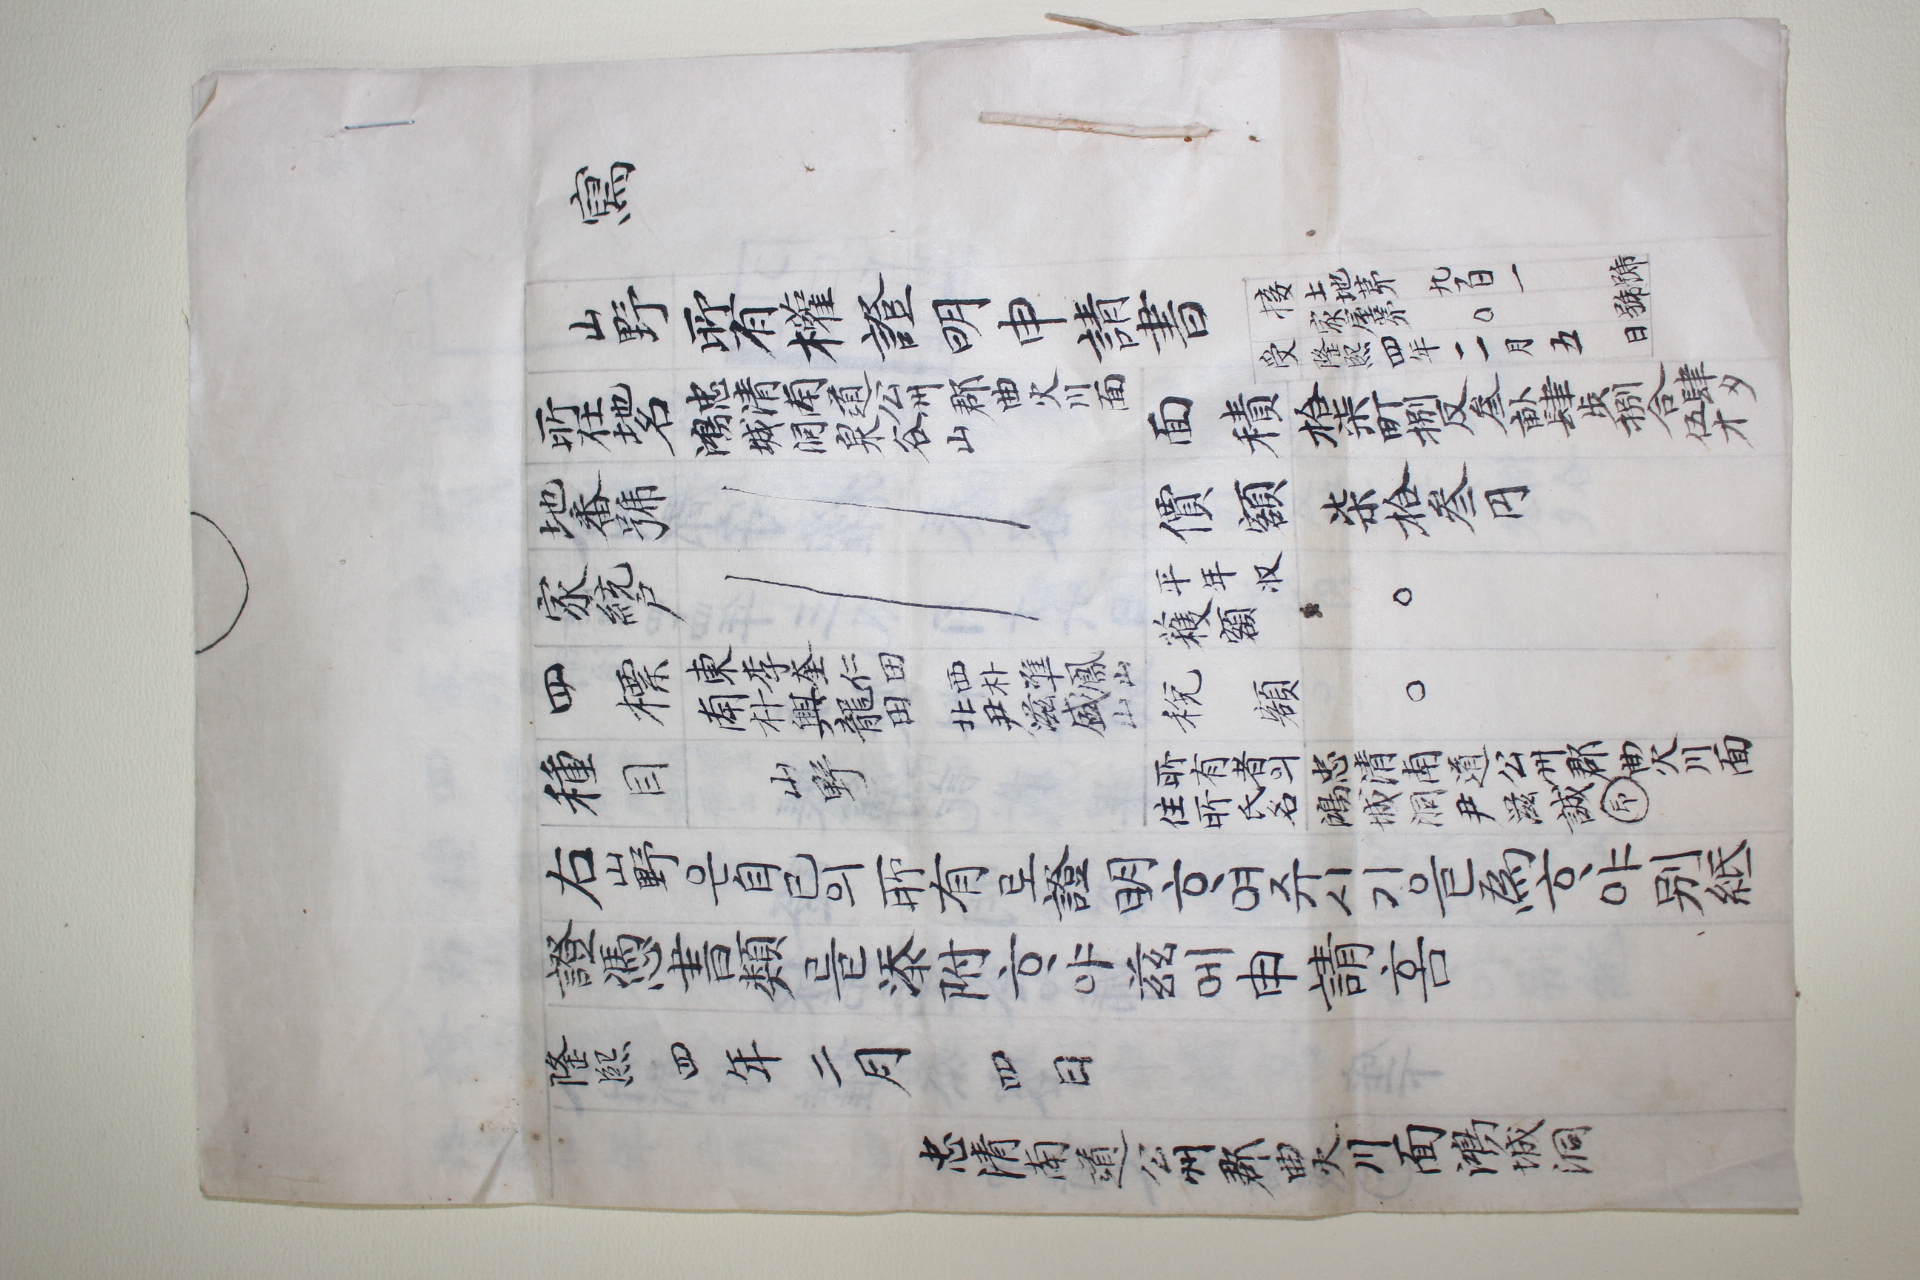 寫
山野所有權證明申請書
接 土地第 九百一 號
家屋第 ○ 號
受 隆熙四年二月五日
所在地名
忠清南道公州郡曲火川面
鴻城洞泉谷山
面積
拾柒町捌反叁畝肆步捌合肆夕
伍才
地番號
價額 柒拾叁円
家統戶
平年收
穫額 ○
四標
東李奎仁田 西朴準鳳山
南朴興龍田 北尹滋盛山
稅額 ○
種目 山野
所有者의
住所氏名
忠清南道公州郡曲火川面
鴻城洞尹滋誠 印
右山野은自己의所有로證明ᄒᆞ여쥬시기을爲ᄒᆞ야別紙
證憑書類를添附ᄒᆞ야玆에申請홈
隆熙四年二月四日
忠清南道公州郡曲火川面鴻城洞